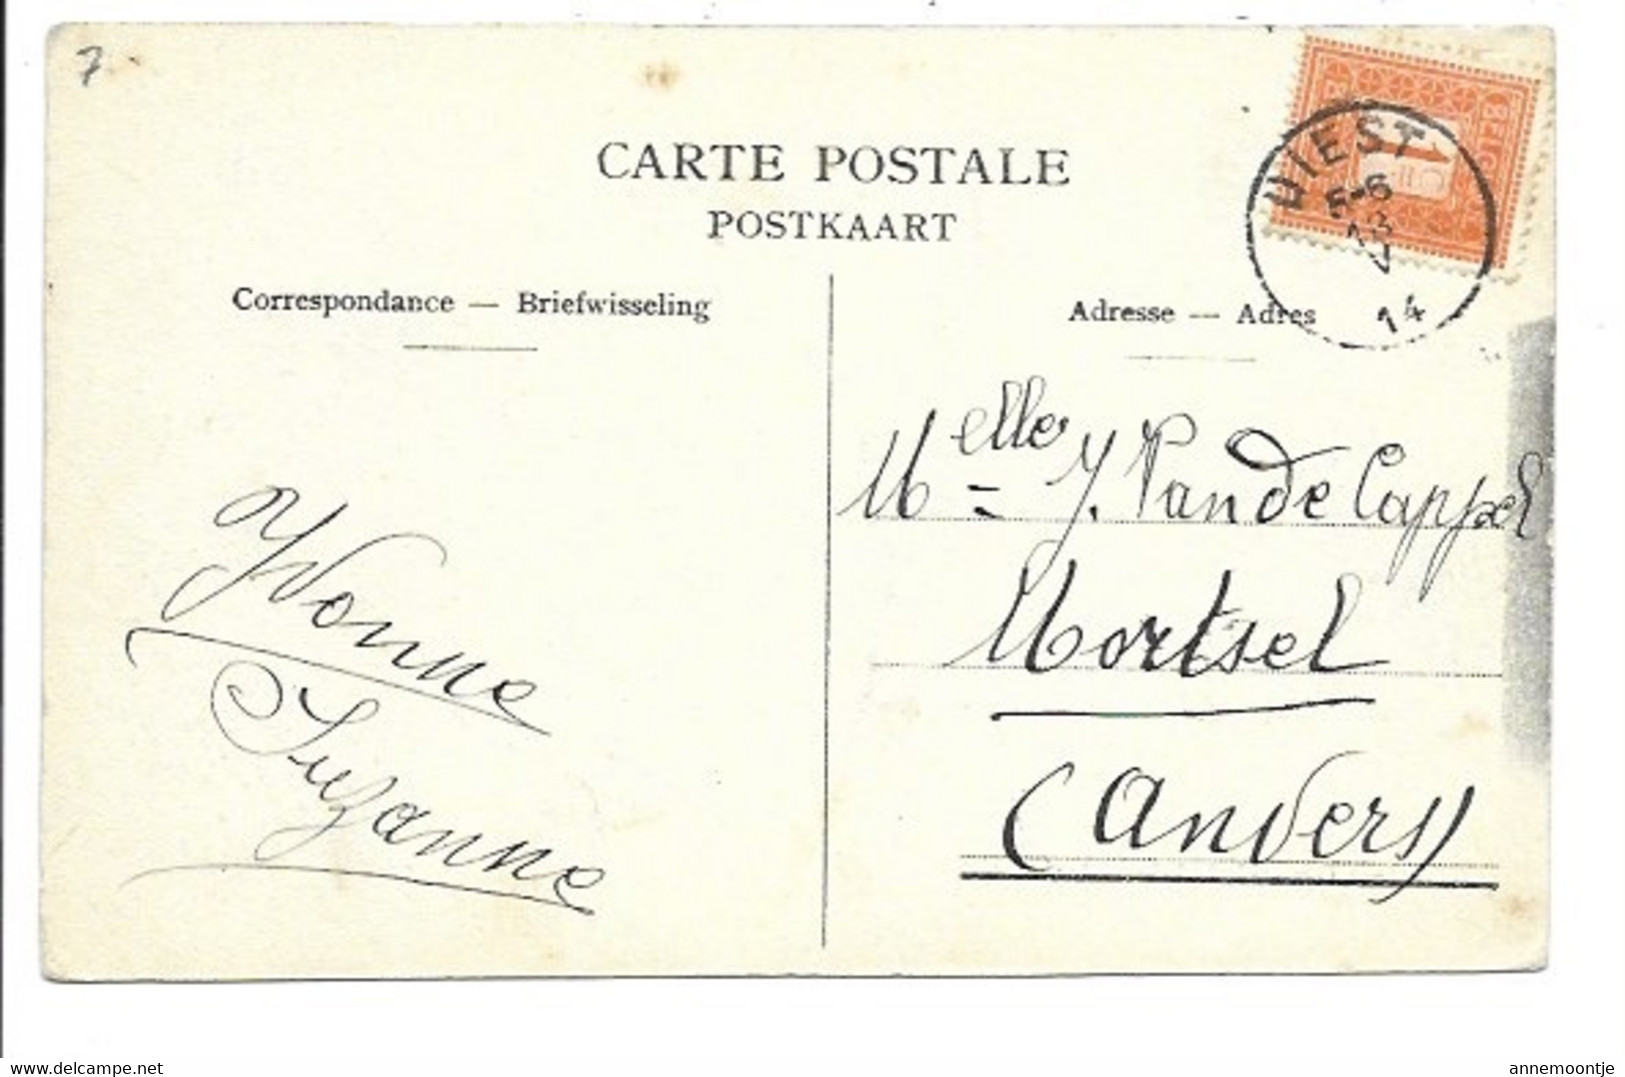 7
CARTE POSTALE
POSTKAART
Correspondance — Briefwisseling
Adresse — Adres
BELG
1
DIEST
5-6
18
V
14
Melle Y. Van de Cappel
Mortsel
(Anvers)
Yvonne
Suzanne
www.delcampe.net
annemoontje